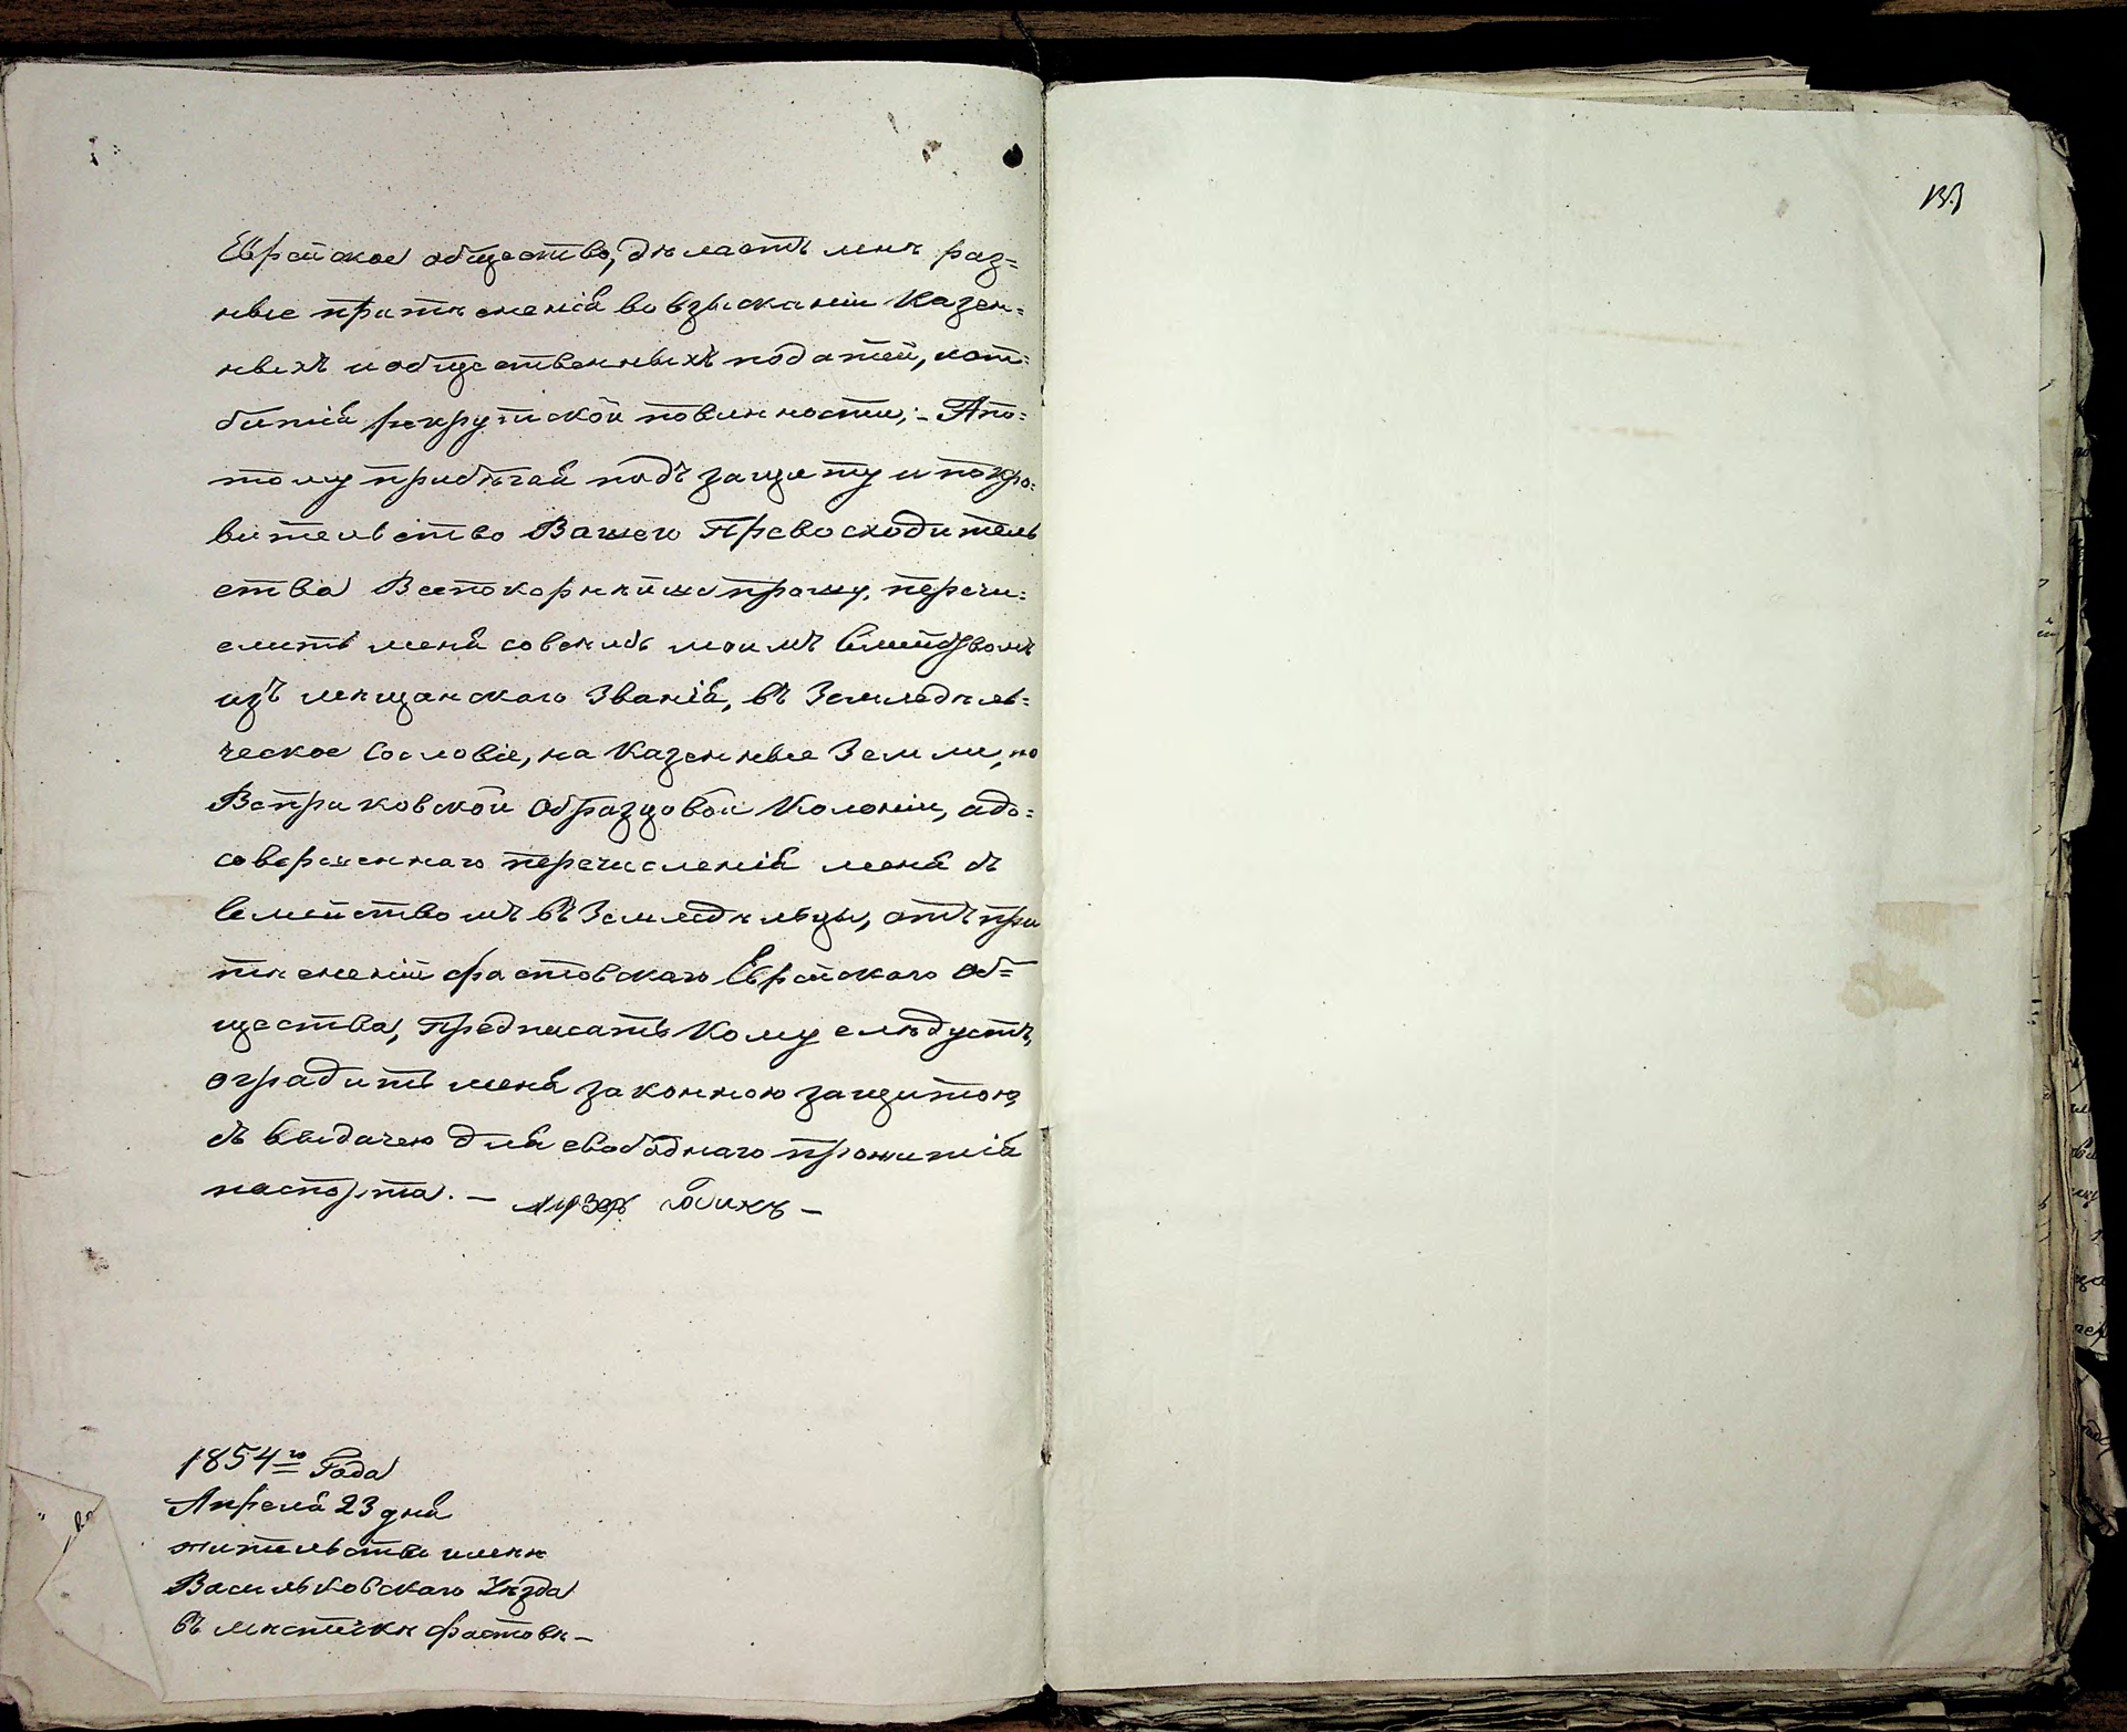 Еврейское общество, дѣлаетъ мнѣ раз=
ные притѣсненія во взысканіи Казен=
ныхъ и общественныхъ податей, и от=
бытія рекрутской повинности; - А по=
тому прибѣгая подъ защиту и покро=
вительство Вашего Превосходитель
ства Всепокорнѣйше прошу, перечи=
слить меня со всѣмъ моимъ Семействомъ
изъ мѣщанскаго Званія, въ Земледѣль=
ческое Сословіе, на Казенные Земли, по
Образцовой Колоніи, а до=
совершеннаго перечисленія меня съ
Семействомъ въ Земледѣльцы, отъ при
тѣсненій Фастовскаго Еврейскаго Об=
щества, предписать Кому слѣдуетъ,
оградить меня законною защитою,
съ выдачею для свободнаго прожитія
паспорта. —
1854го Года
Апреля 23 дня
жительство имѣю
Васильковскаго Уѣзда
въ мѣстечкѣ Фастовѣ —